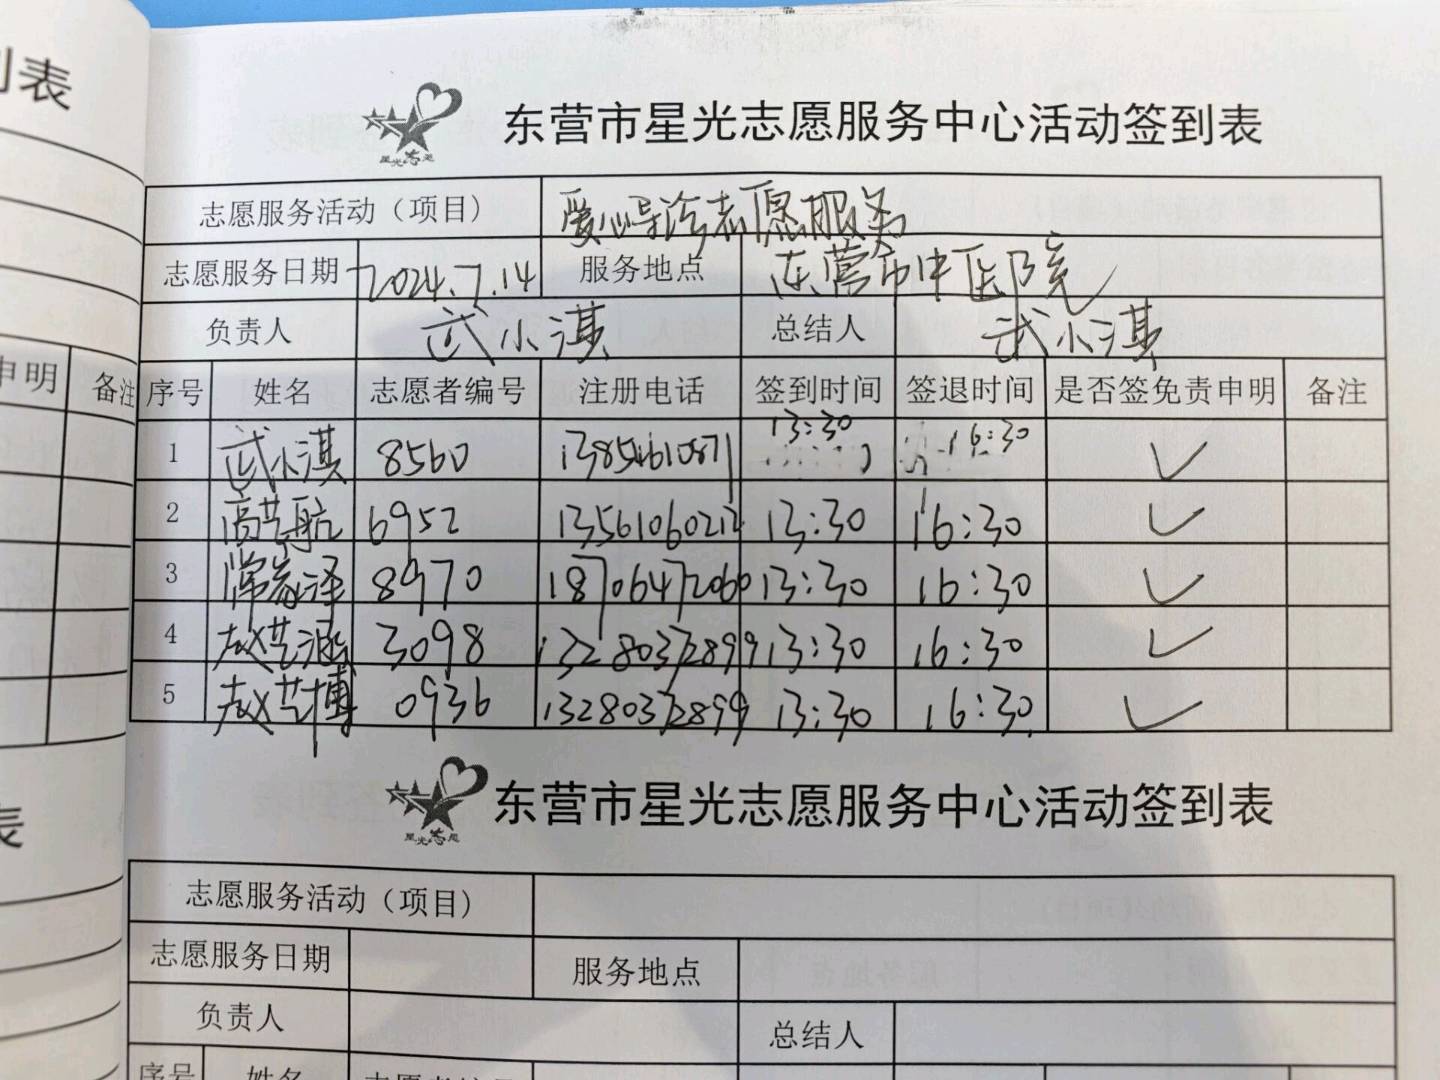 到表
东营市星光志愿服务中心活动签到表
星光志愿
志愿服务活动（项目） 爱心导诊志愿服务
志愿服务日期 2024.7.14 服务地点 东营市中医院
负责人 武小淇 总结人 武小淇
申明 备注
序号 姓名 志愿者编号 注册电话 签到时间 签退时间 是否签免责申明 备注
1 武小淇 8560 13:30 16:30 ✓
2 高艺航 6952 13561060212 13:30 16:30 ✓
3 8970 18706472060 13:30 16:30 ✓
4 赵艺涵 3098 13280372899 13:30 16:30 ✓
5 赵艺博 0936 13280372899 13:30 16:30 ✓
表
东营市星光志愿服务中心活动签到表
星光志愿
志愿服务活动（项目）
志愿服务日期 服务地点
负责人 总结人
序号 姓名 志愿者编号